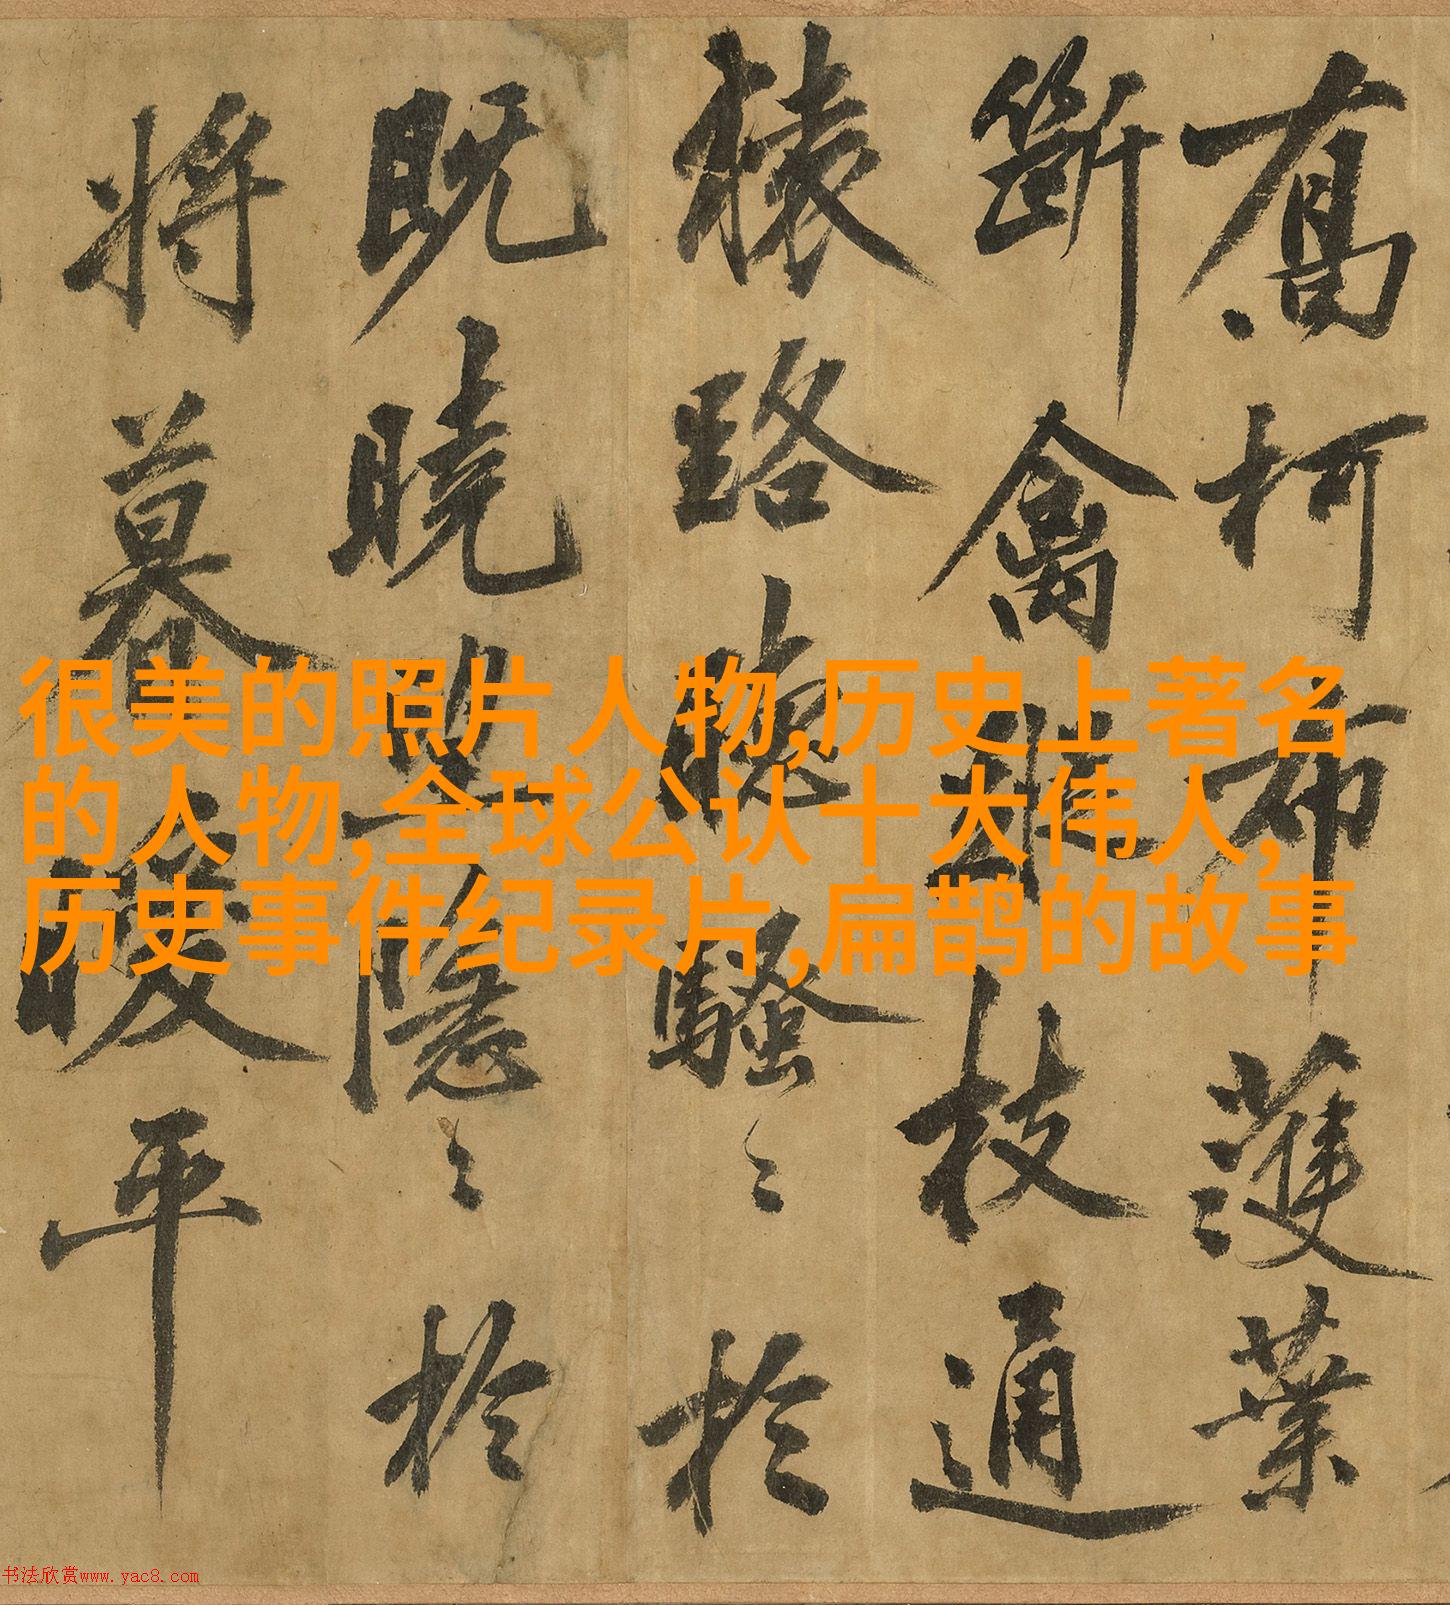 很美的照片人物,历史上著名
的人物,全球公认十大伟人,
历史事件纪录片,扁鹊的故事
柯布濩葉
斷禽枝通
猿路聴騷〻於
既曉望隱〻於
将暮暖平
书法欣赏www.yac8.com